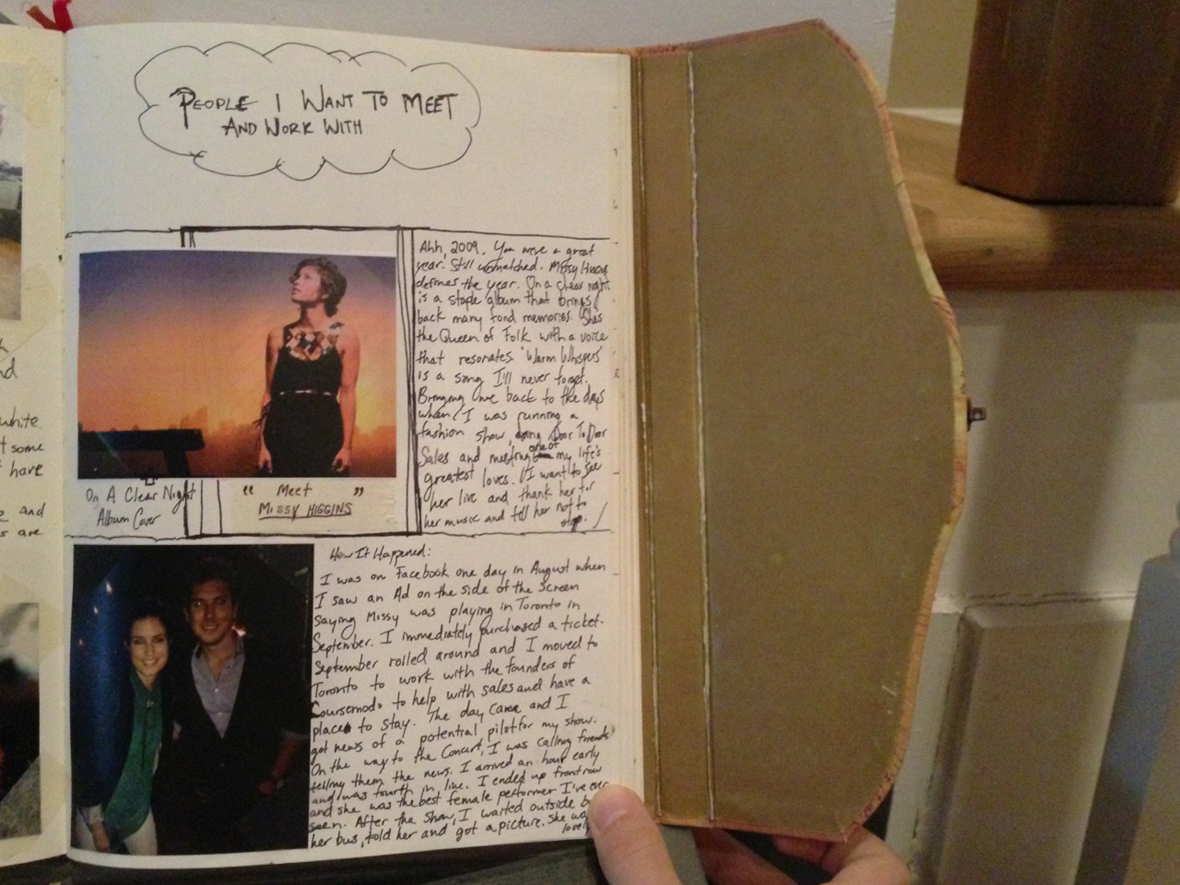 PEOPLE I WANT TO MEET
AND WORK WITH
nd
white.
t some
have
and
s are
On A Clear Night
Album Cover
" Meet "
MISSY HIGGINS
Ahh, 2009. You were a great
year. Still unmatched. Missy Higgins
defines the year. On a clear night
is a staple album that brings
back many fond memories. Shes
the Queen of Folk with a voice
that resonates. "Warm Whispers"
is a song I'll never forget.
Bringing me back to the days
when I was running a
fashion show, doing Door To Door
Sales and meeting one of my life's
greatest loves. I want to see
her live and thank her for
her music and tell her not to
stop.
How It Happened:
I was on Facebook one day in August when
I saw an Ad on the side of the screen
saying Missy was playing in Toronto in
September. I immediately purchased a ticket.
September rolled around and I moved to
Toronto to work with the founders of
Coursemodo to help with sales and have a
place to stay. The day came and I
got news of a potential pilot for my show.
On the way to the Concert, I was calling friends
telling them the news. I arrived an hour early
and was fourth in line. I ended up front row
and she was the best female performer I've ever
seen. After the show, I waited outside
her bus, told her and got a picture. She was
lovely